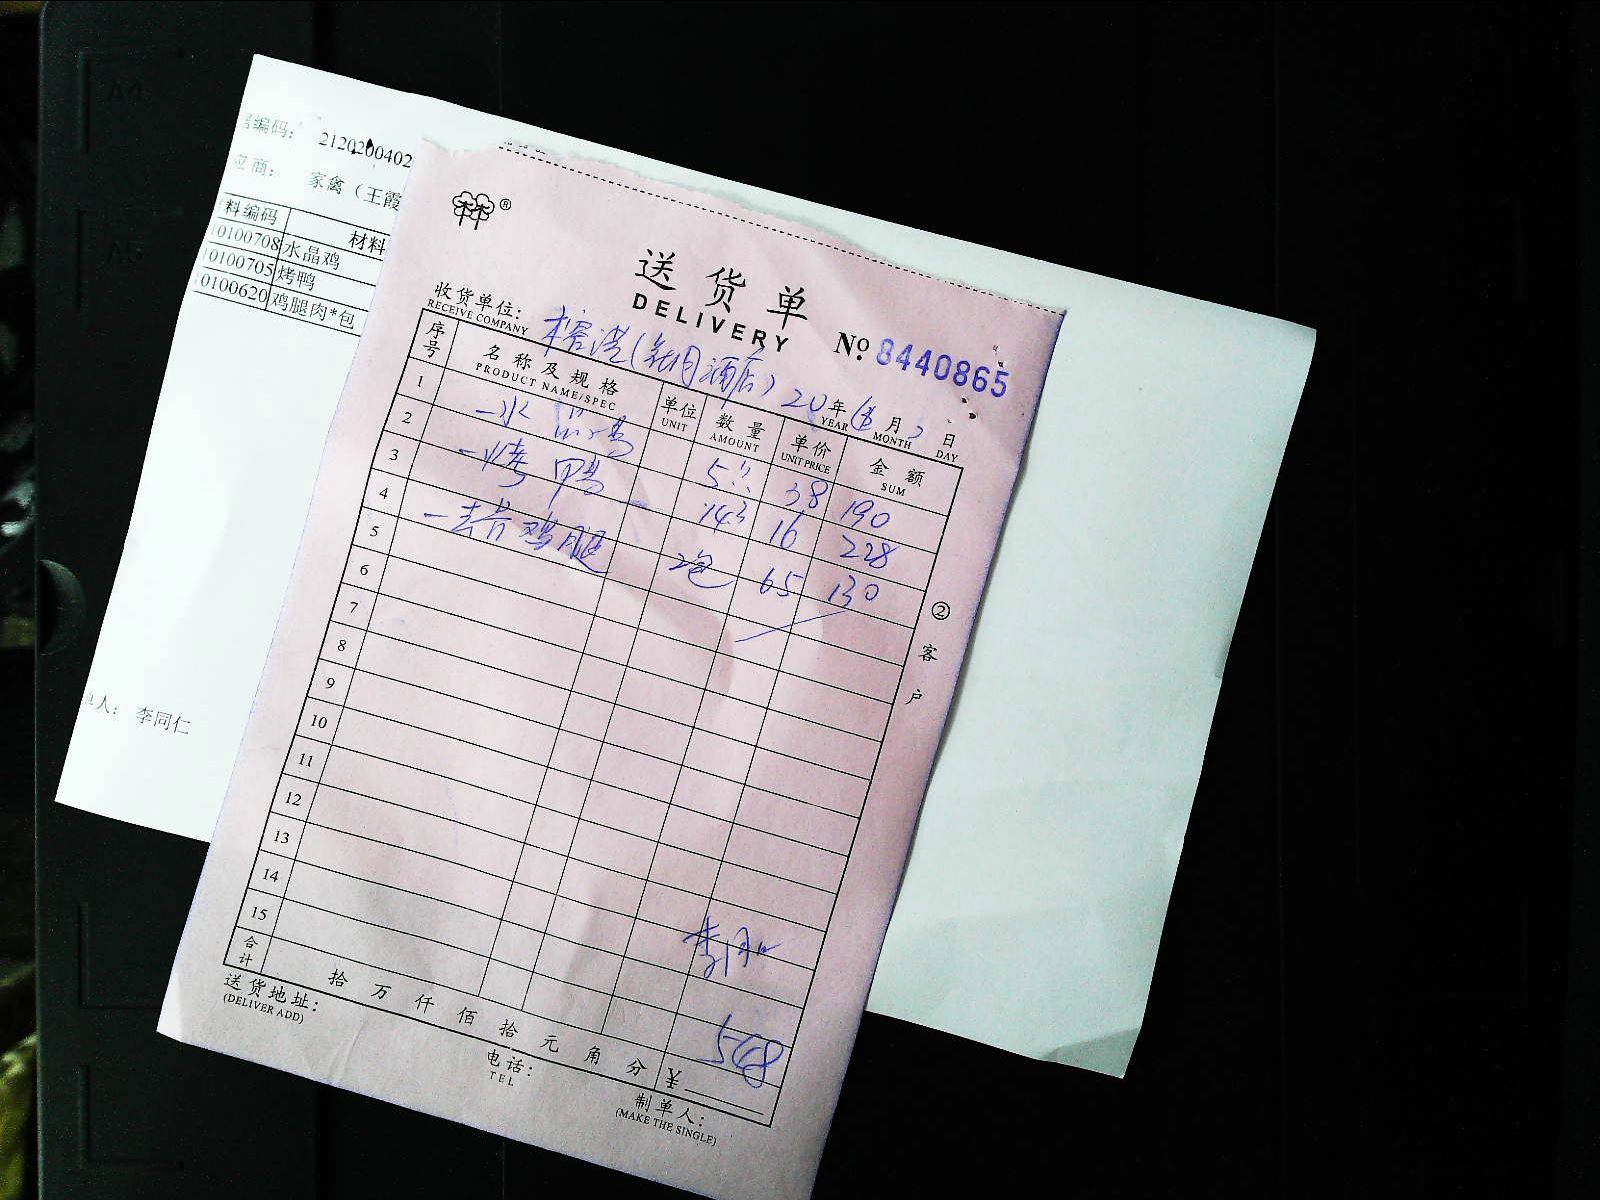 编码： 2120200402
应商： 家禽（王霞
料编码 材料
0100708 水晶鸡
0100705 烤鸭
0100620 鸡腿肉*包
人： 李同仁
®
送货单
DELIVERY
收货单位：
RECEIVE COMPANY
酒店）
№ 8440865
20 年 月 日
YEAR MONTH DAY
序号 名称及规格 单位 数量 单价 金额
PRODUCT NAME/SPEC UNIT AMOUNT UNIT PRICE SUM
1 水晶鸡 5 38 190
2 烤鸭 16 228
3 去骨鸡腿 2包 65 130
4
5
6
7
8
9
10
11
12
13
14
15
②客户
合计 拾 万 仟 佰 拾 元 角 分 ¥ 548
送货地址：
(DELIVER ADD)
电话：
TEL
制单人：
(MAKE THE SINGLE)